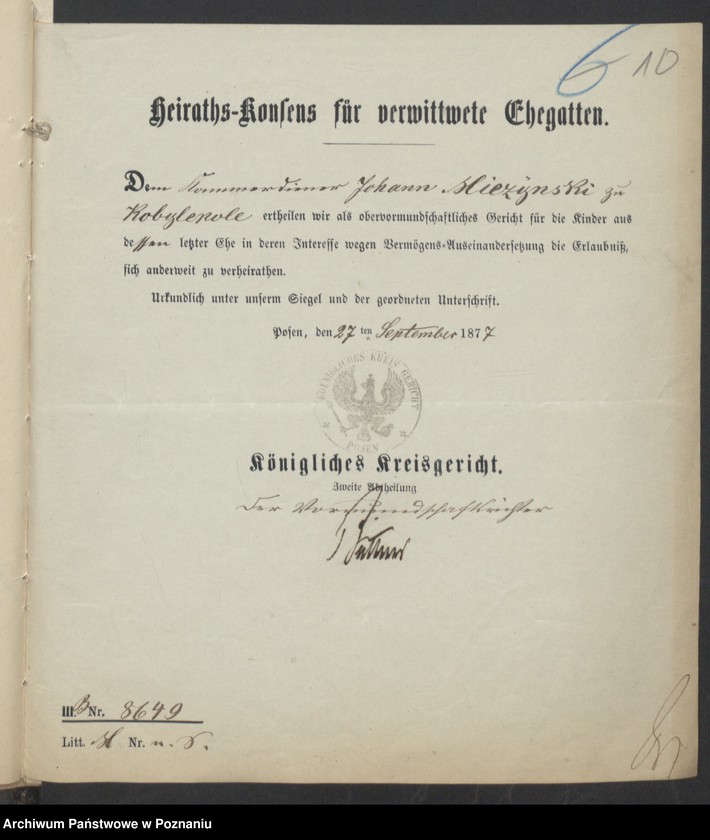 6 10
Heiraths-Konsens für verwittwete Ehegatten.
Dem Kammerdiener Johann Miezynski zu
Kobylepole ertheilen wir als obervormundschaftliches Gericht für die Kinder aus
dessen letzter Ehe in deren Interesse wegen Vermögens-Auseinandersetzung die Erlaubniß,
sich anderweit zu verheirathen.
Urkundlich unter unserm Siegel und der geordneten Unterschrift.
Posen, den 27 ten September 1877
KOENIGLICHES KREIS GERICHT
POSEN
Königliches Kreisgericht.
Zweite Abtheilung
Der Vormundschaftsrichter
III. B Nr. 8649
Litt. M Nr. n. S.
Archiwum Państwowe w Poznaniu